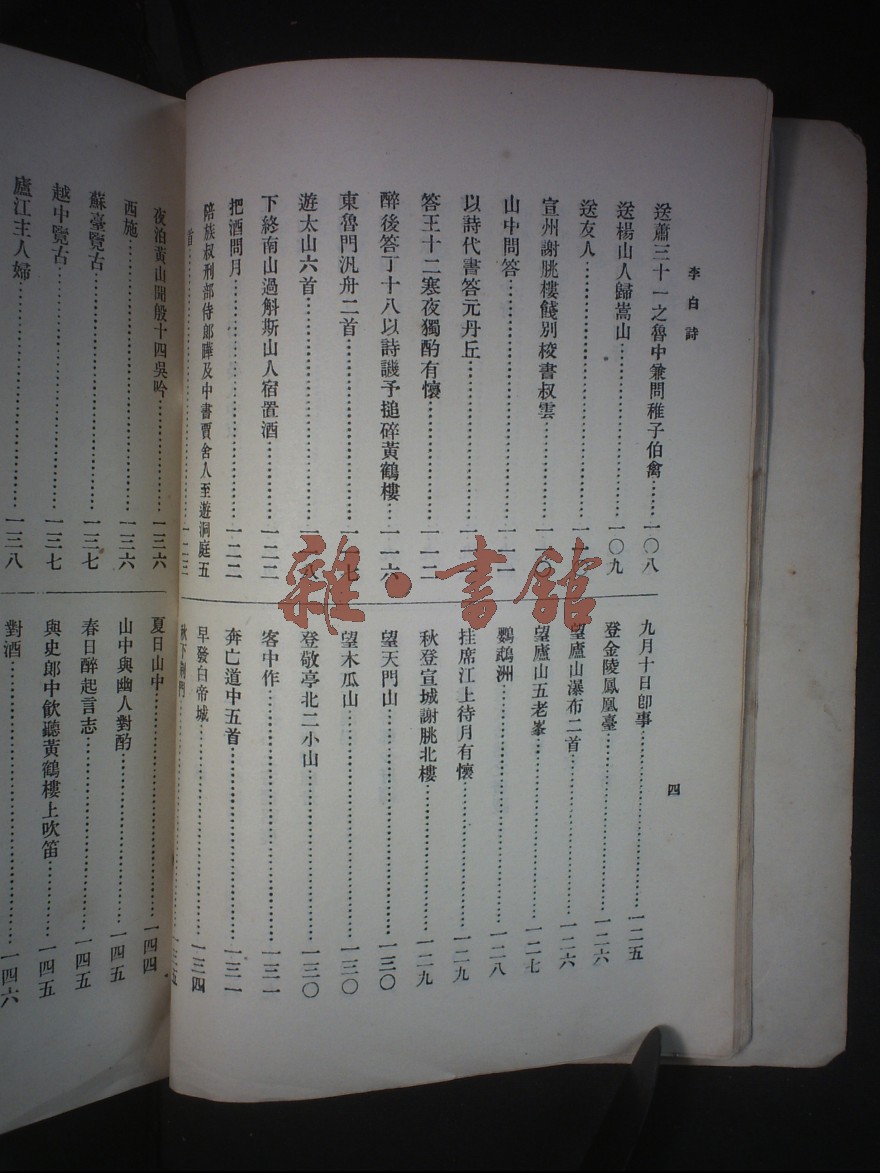 李白詩
送蕭三十一之魯中兼問稚子伯禽……一〇八
送楊山人歸嵩山……一〇九
送友人……
宣州謝朓樓餞別校書叔雲……一一〇
山中問答……一一
以詩代書答元丹丘……一
答王十二寒夜獨酌有懷……一一二
醉後答丁十八以詩譏予搥碎黃鶴樓……一一六
東魯門汎舟二首……一一七
遊太山六首……一一八
下終南山過斛斯山人宿置酒……一二二
把酒問月……一二二
陪族叔刑部侍郎曄及中書賈舍人至遊洞庭五
首……一二三
九月十日卽事……一二五
登金陵鳳凰臺……一二六
望廬山瀑布二首……一二六
望廬山五老峯……一二七
鸚鵡洲……一二八
挂席江上待月有懷……一二九
秋登宣城謝朓北樓……一二九
望天門山……一三〇
望木瓜山……一三〇
登敬亭北二小山……一三〇
客中作……一三一
奔亡道中五首……一三一
早發白帝城……一三四
秋下荆門……一三五
四
夜泊黃山聞殷十四吳吟……一三六
西施……一三六
蘇臺覽古……一三七
越中覽古……一三七
廬江主人婦……一三八
夏日山中……一四四
山中與幽人對酌……一四五
春日醉起言志……一四五
與史郎中飲聽黃鶴樓上吹笛……一四五
對酒……一四六
雜·書館